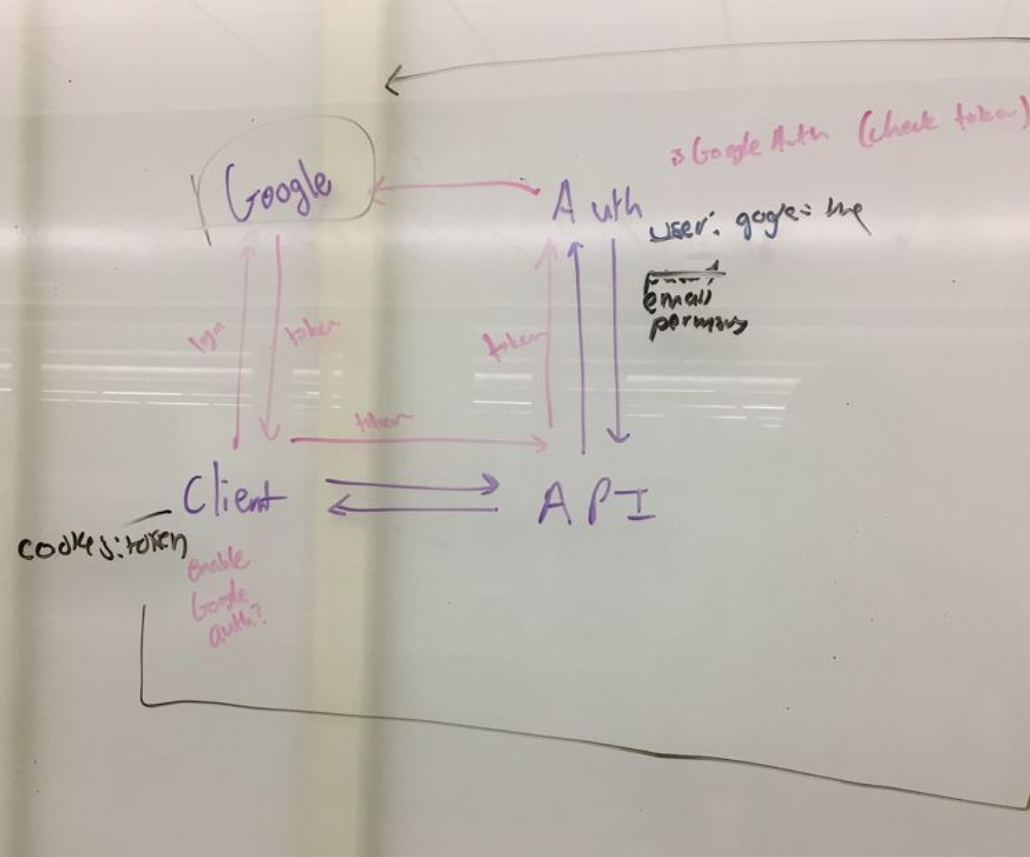 Google Auth (check token)
Google
Auth
user: google: true
email
permiss
login
token
token
token
Client
API
cookies: token
enable
Google
auth?